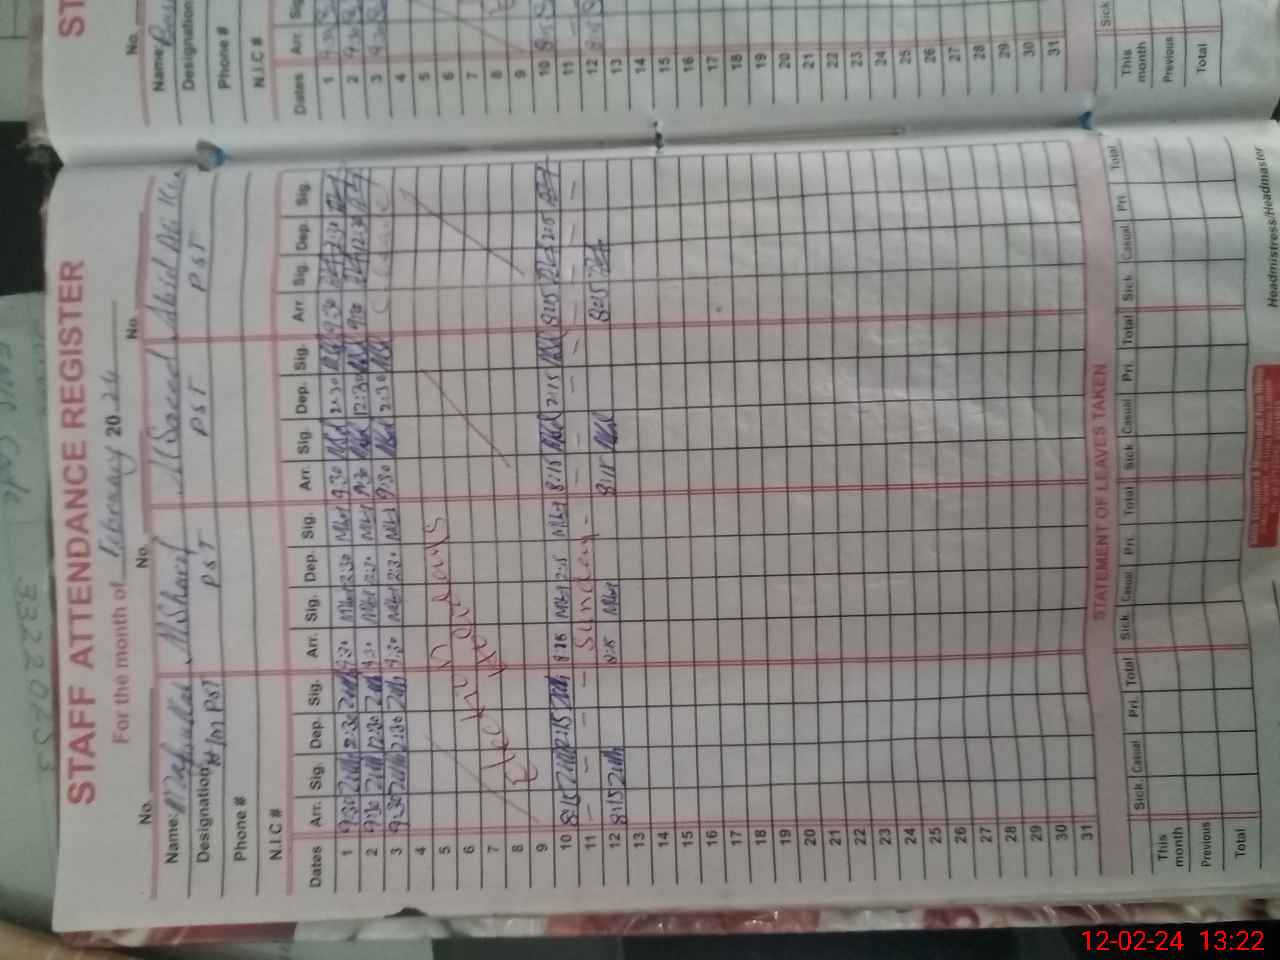 STAFF ATTENDANCE REGISTER
For the month of February 2024
No. No. No.
Name: M Sharif M Saeed Abid Ali
Designation: HM PST PST PST PST
Phone #
N.I.C #
Dates Arr. Sig. Dep. Sig. Arr. Sig. Dep. Sig. Arr. Sig. Dep. Sig. Arr. Sig. Dep. Sig.
1 9:30 2:30 9:30 12:30 9:30 2:30 9:30 2:30
2 9:30 12:30 9:30 12:30 9:30 12:30 9:30 12:30
3 9:30 2:30 9:30 2:30 9:30 2:30 C Leave
4
5
6
7
8
9
Election Holidays
10 8:15 2:15 8:15 2:15 8:15 2:15 8:15 2:15
11 — — — — Sunday — — — — —
12 8:15 8:15 8:15 8:15
13
14
15
16
17
18
19
20
21
22
23
24
25
26
27
28
29
30
31
STATEMENT OF LEAVES TAKEN
Sick. Casual Pri. Total Sick. Casual Pri. Total Sick. Casual Pri. Total Sick. Casual Pri. Total
This month
Previous
Total
Headmistress/Headmaster
ST
No.
Name:
Designation
Phone #
N.I.C #
Dates Arr. Sig.
1 9:30
2 9:30
3 9:30
4
5
6
7
8
9
10 8:15
11
12 8:15
13
14
15
16
17
18
19
20
21
22
23
24
25
26
27
28
29
30
31
Sick
This month
Previous
Total
12-02-24 13:22